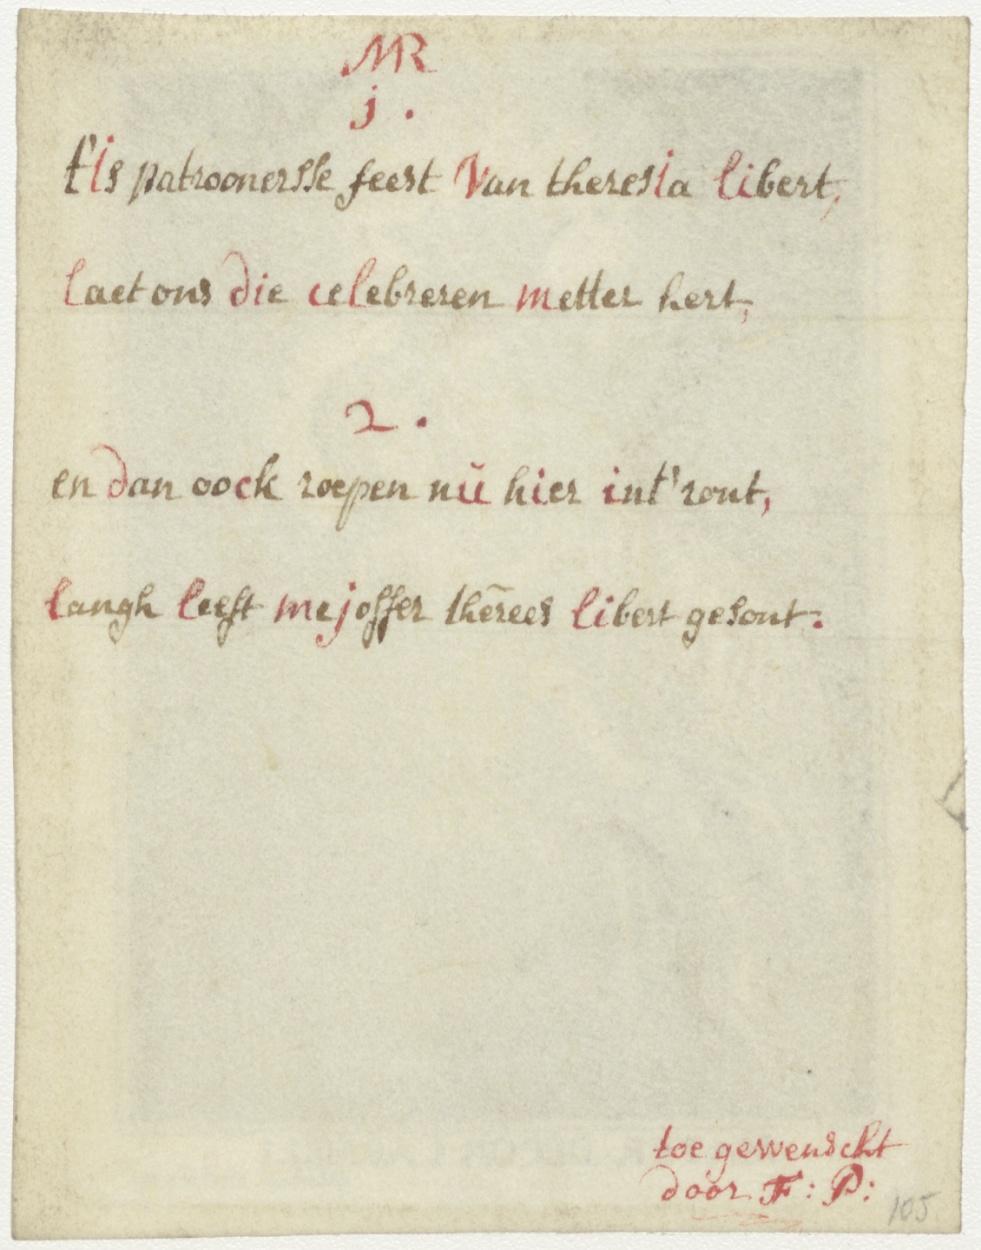 MR
j.
t'is patroonersse feest Van theresia libert,
laet ons die celebreren metter hert,
2.
en dan oock roepen nŭ hier int' ront,
langh leeft mejoffer thērees libert gesont.
toe gewenscht
door F: P:
105